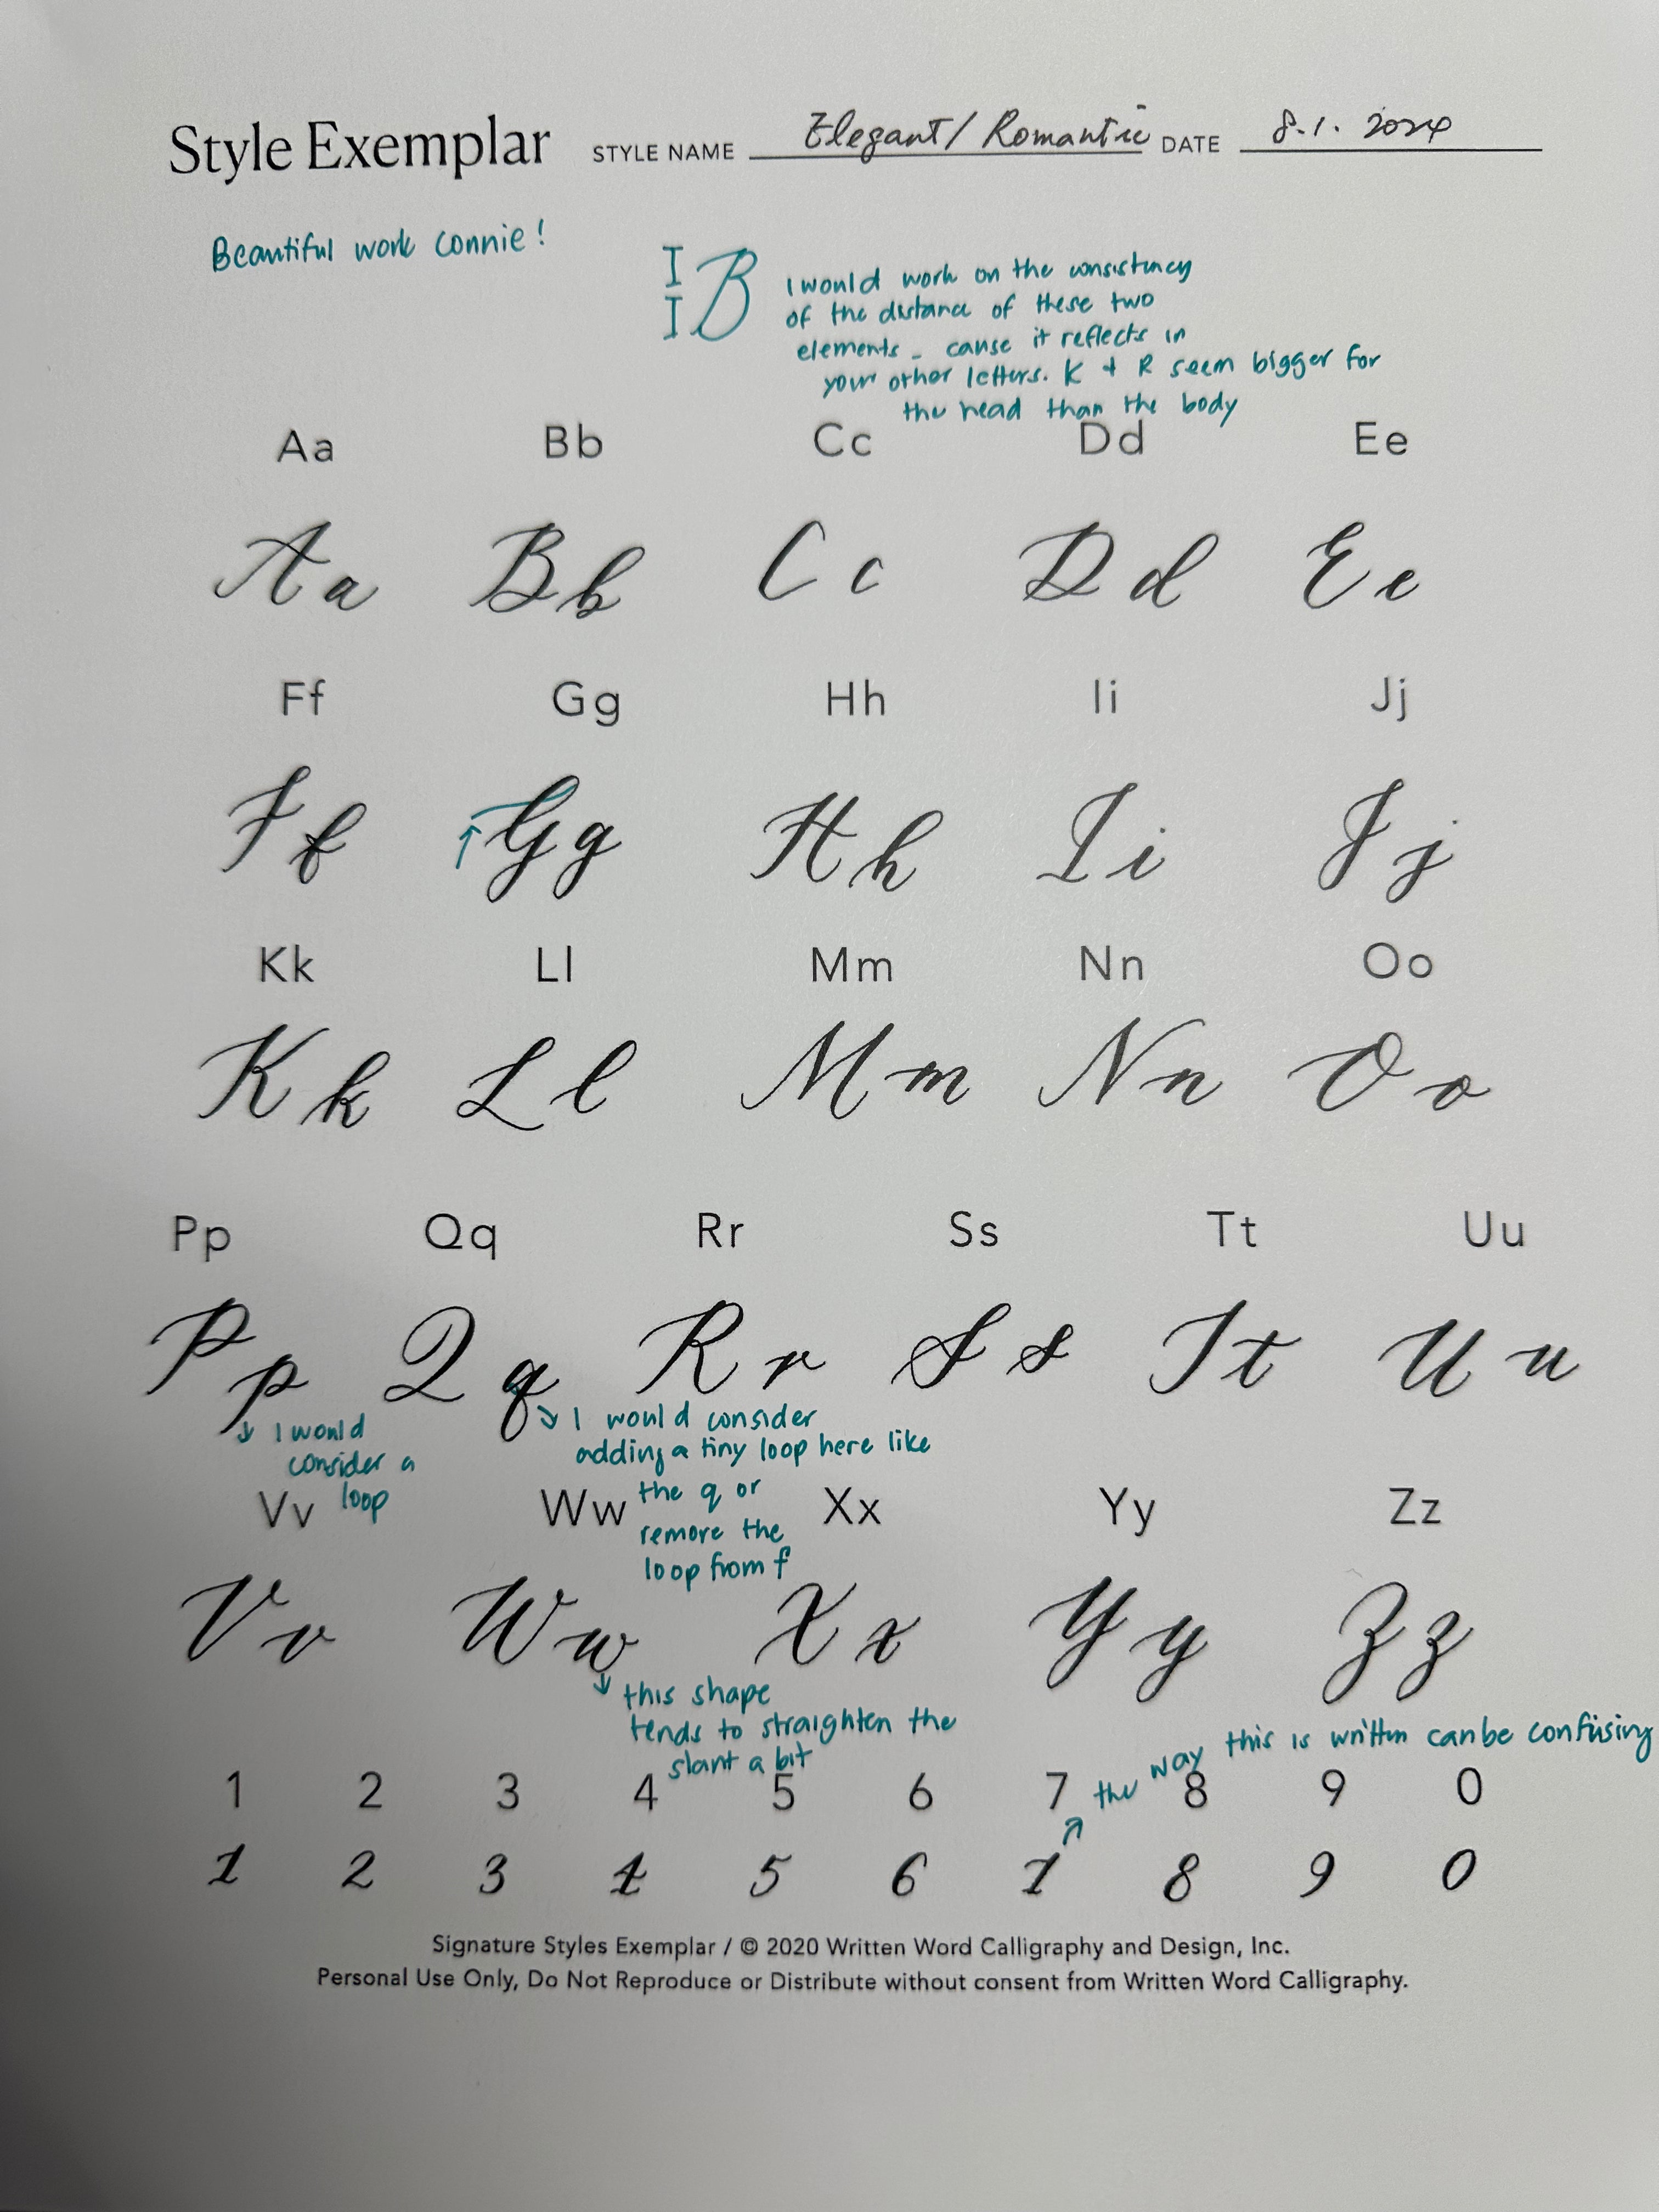 Style Exemplar STYLE NAME Elegant/ Romantic DATE 8.1. 2024
Beautiful work Connie!
B I would work on the consistency
of the distance of these two
elements - cause it reflects in
your other letters. K + R seem bigger for
the head than the body
Aa Bb Cc Dd Ee
A a B b C c D d E e
Ff Gg Hh Ii Jj
F f G g H h I i J j
Kk Ll Mm Nn Oo
K k L l M m N n O o
Pp Qq Rr Ss Tt Uu
P p Q q R r S s T t U u
I would
consider a
loop
I would consider
adding a tiny loop here like
the q or
remove the
loop from f
Vv Ww Xx Yy Zz
V v W w X x Y y Z z
this shape
tends to straighten the
slant a bit
the way this is written can be confusing
1 2 3 4 5 6 7 8 9 0
1 2 3 4 5 6 7 8 9 0
Signature Styles Exemplar / © 2020 Written Word Calligraphy and Design, Inc.
Personal Use Only, Do Not Reproduce or Distribute without consent from Written Word Calligraphy.